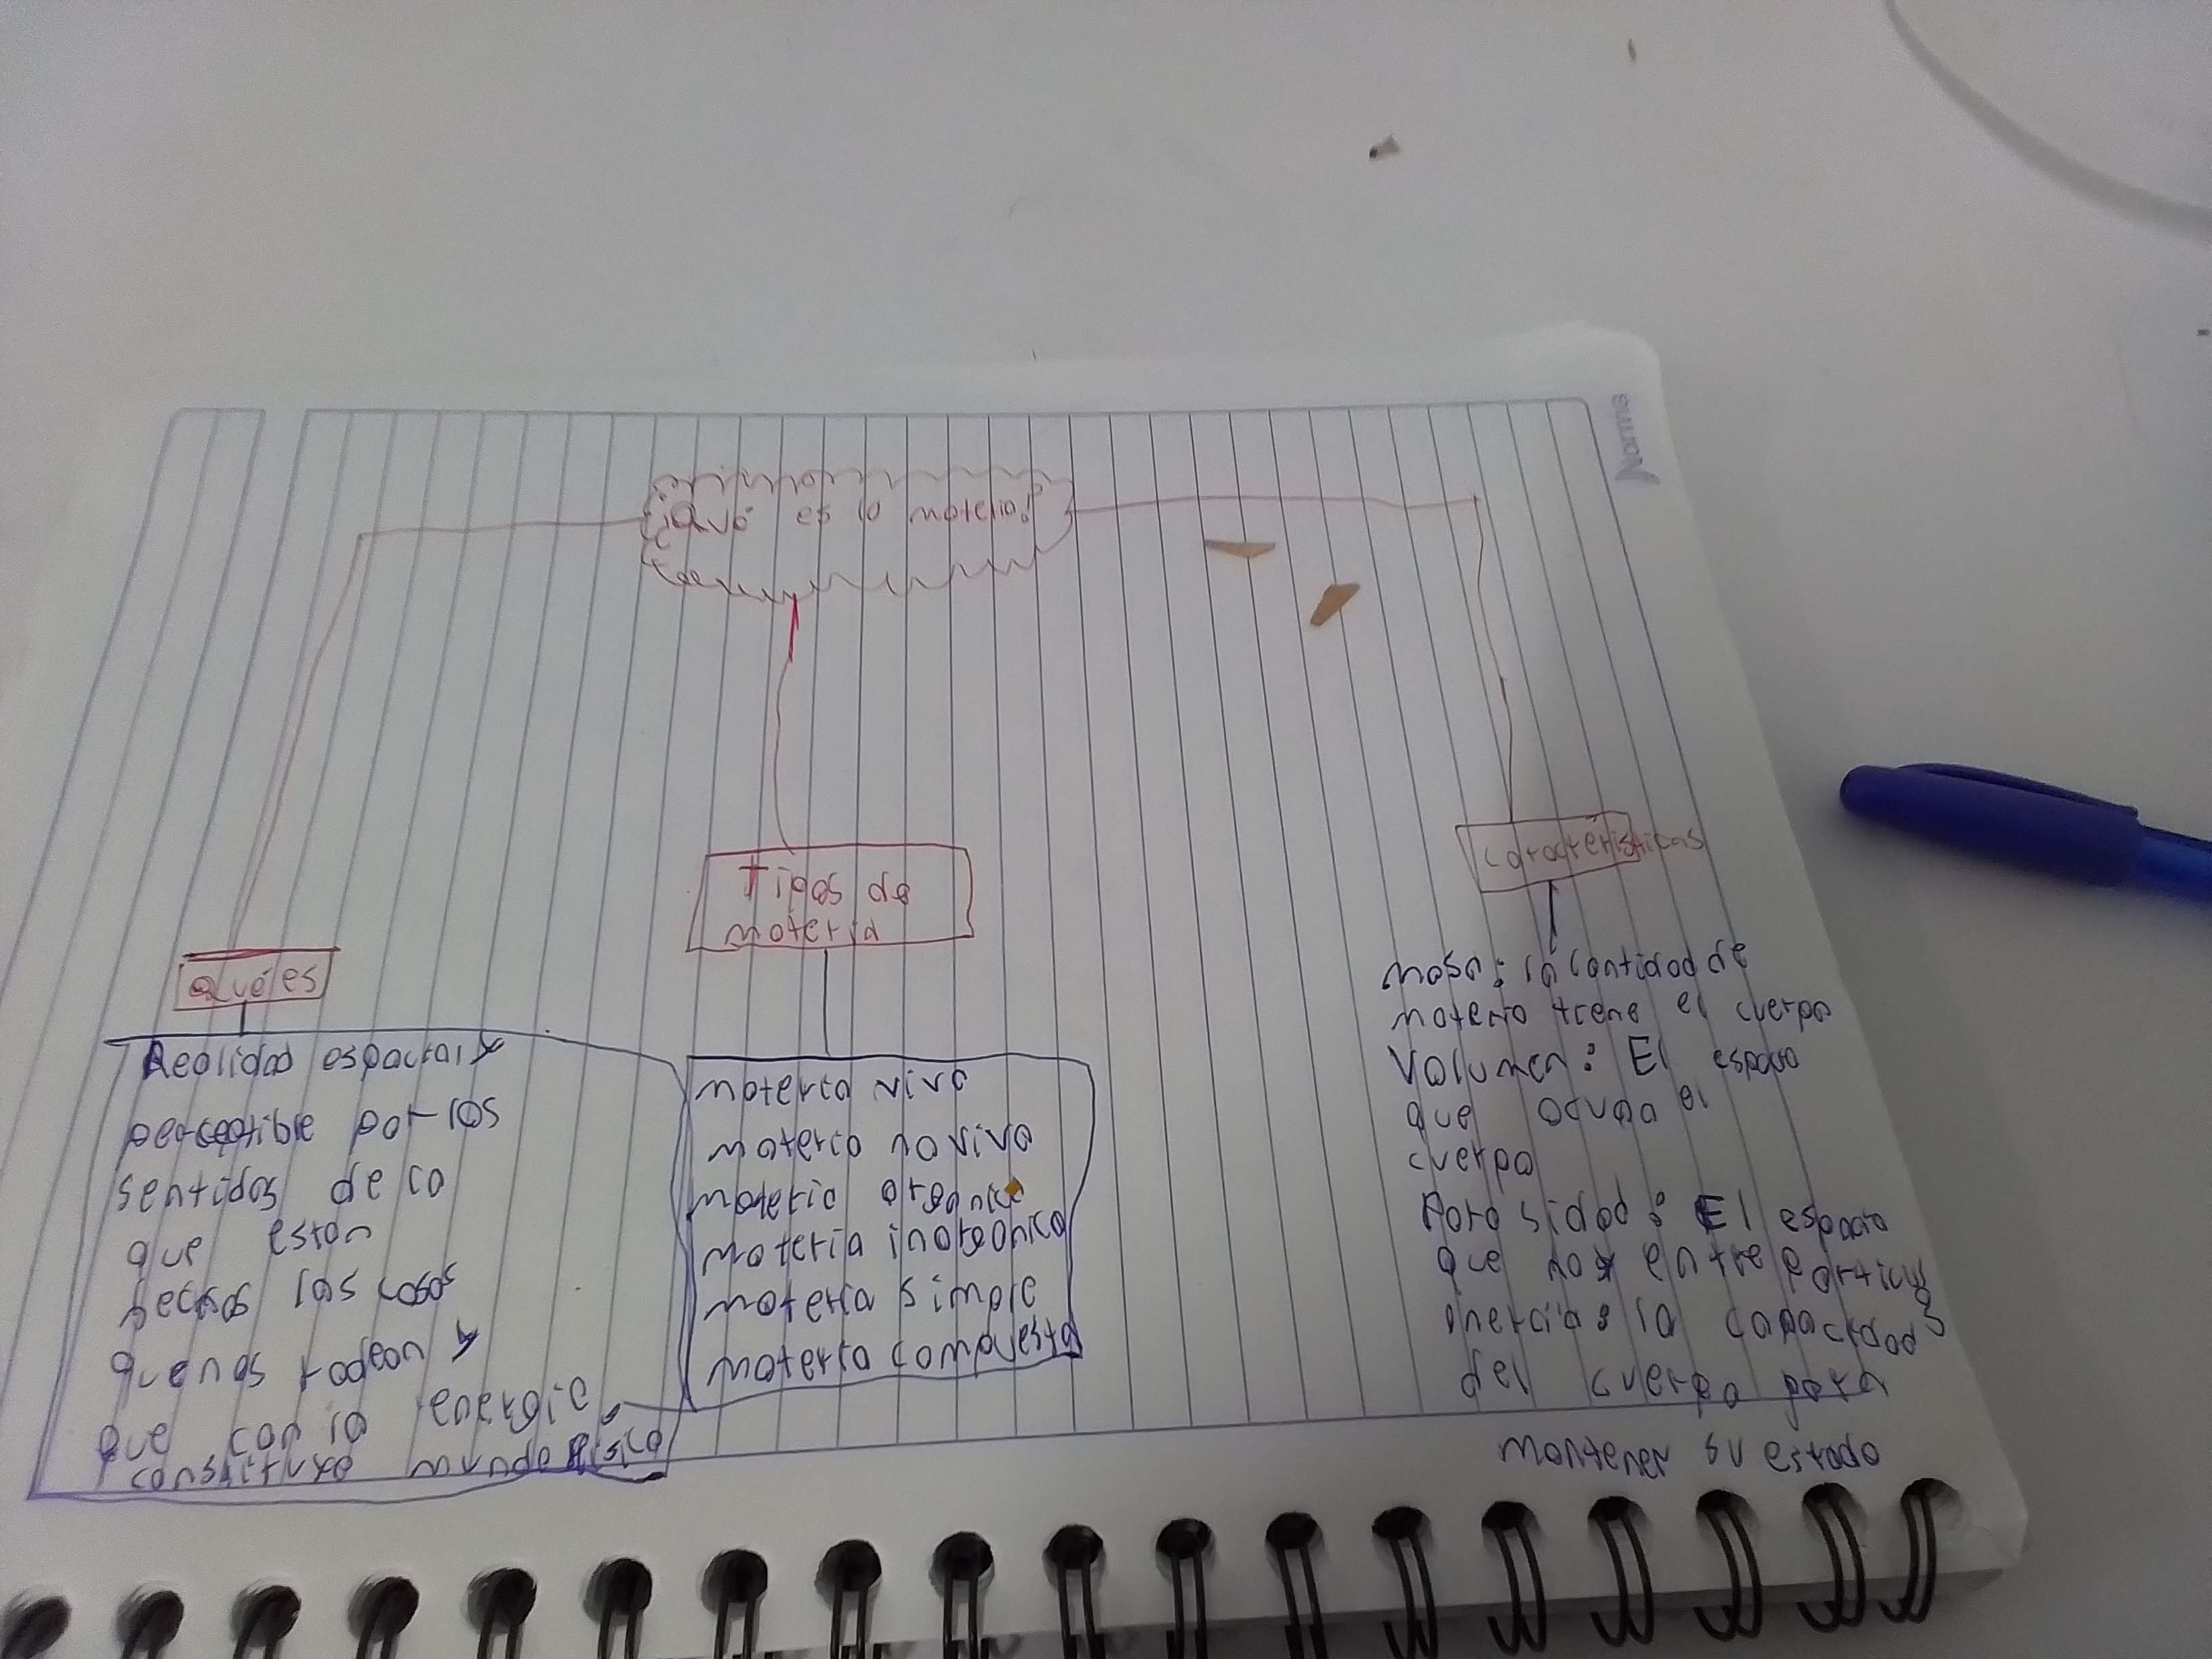 ¿Qué es la materia?
Tipos de
materia
características
Qué es
Realidad espacial y
perceptible por los
sentidos de la
que están
hechas las cosas
que nos rodean y
que con la energia,
constituye mundo físico
materia viva
materia no viva
materia organica
materia inorgánica
materia simple
materia compuesta
masa: la cantidad de
materia tiene el cuerpo
Volumen: El espacio
que ocupa el
cuerpo
Porosidad: El espacio
que hay entre particulas
inercia: la capacidad
del cuerpo para
mantener su estado
Norma